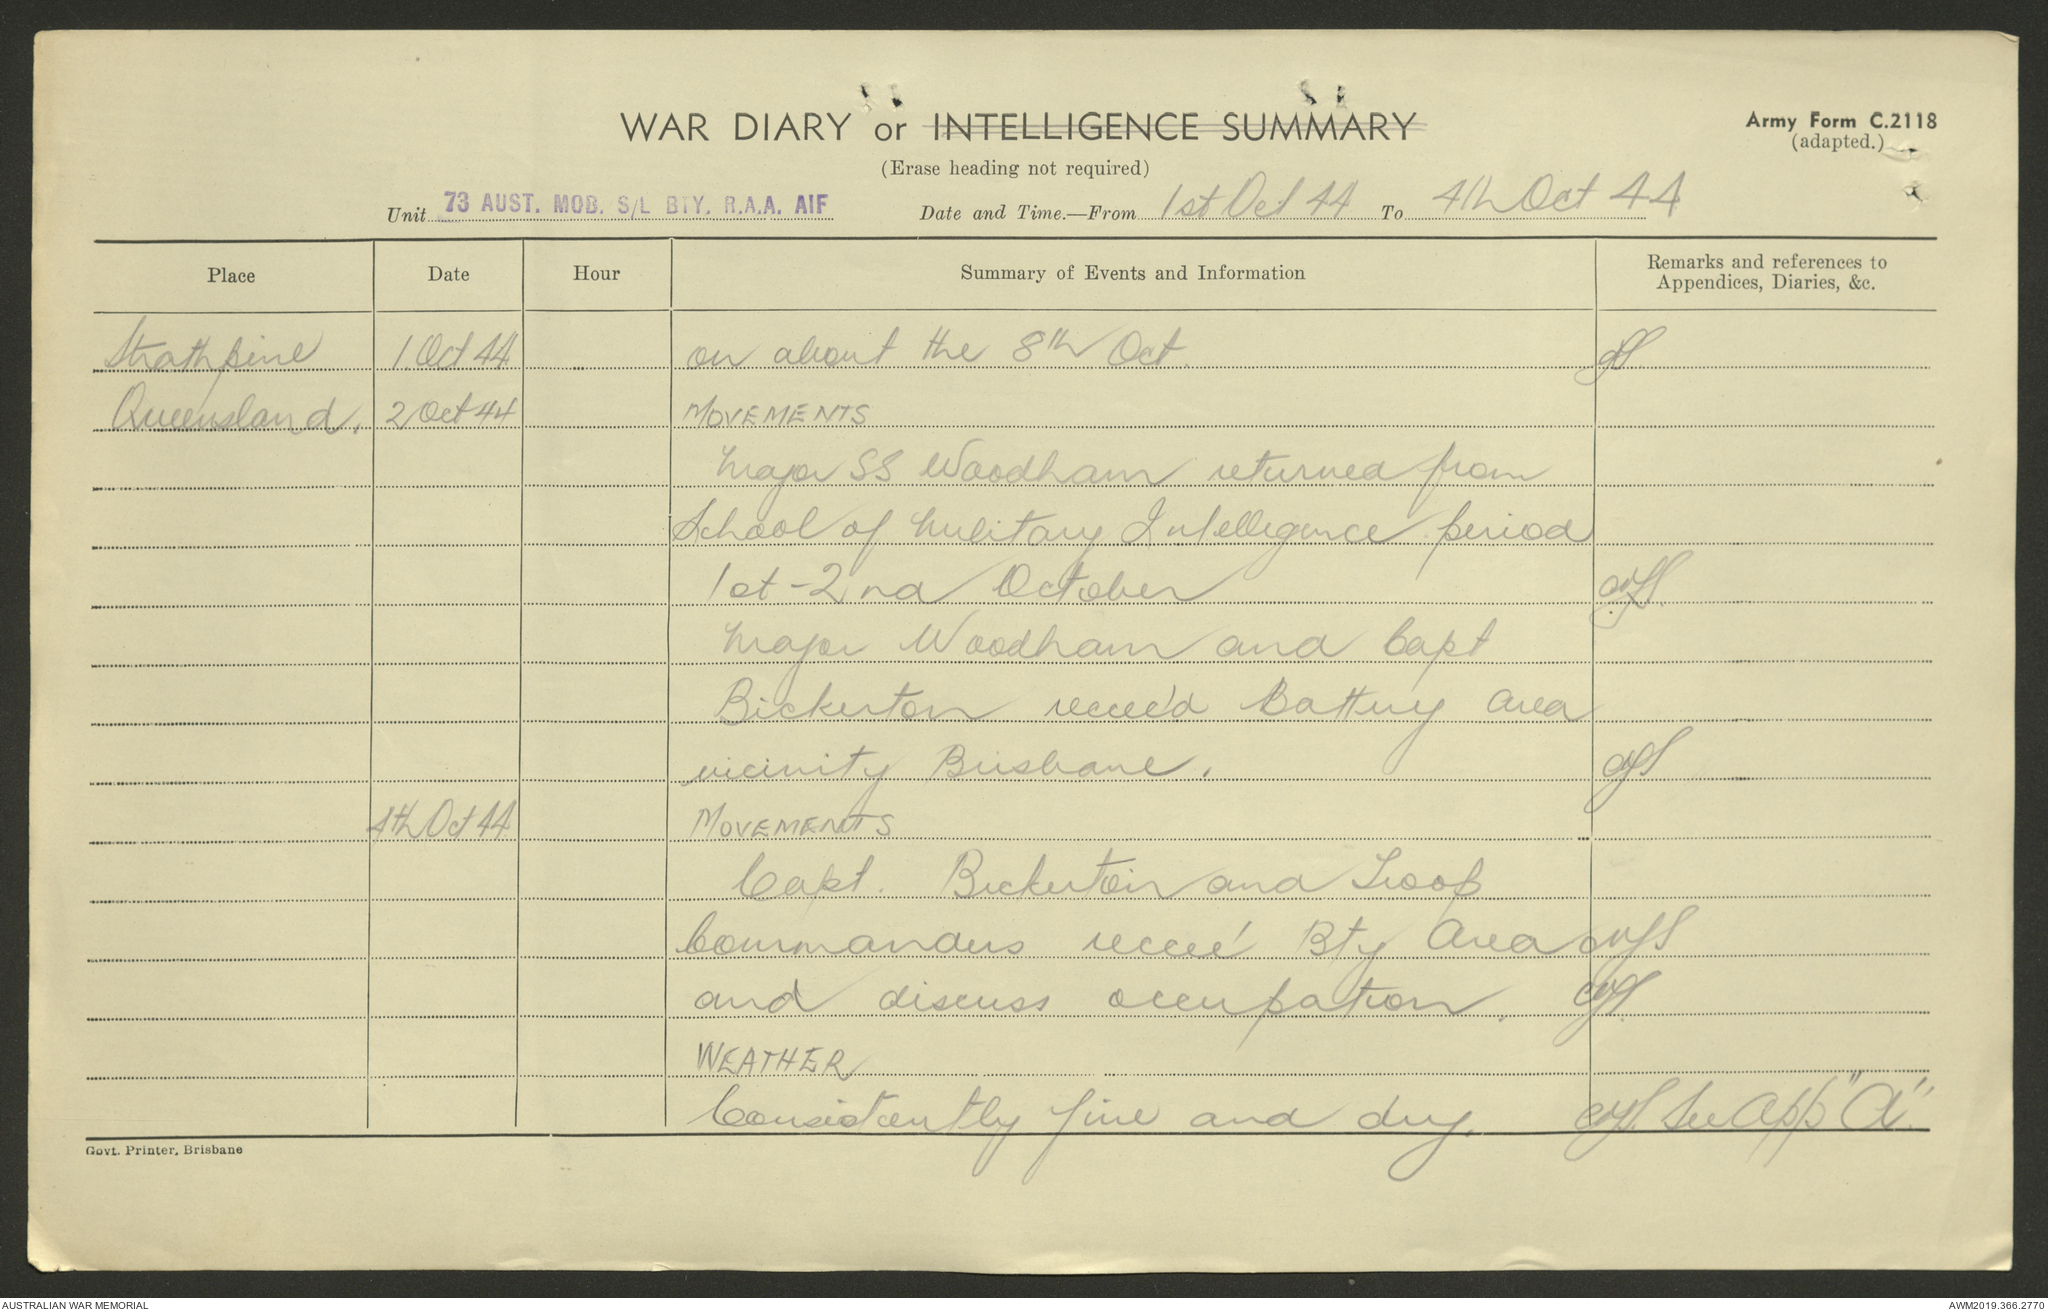 WAR DIARY or INTELLIGENCE SUMMARY
Army Form C.2118
(adapted.)
(Erase heading not required)
Unit 73 AUST. MOB. S/L BTY. R.A.A. AIF Date and Time.—From 1st Oct 44 To 4th Oct 44
Place Date Hour Summary of Events and Information Remarks and references to
Appendices, Diaries, &c.
Strathpine 1 Oct 44 on about the 8th Oct.
Queensland. 2 Oct 44 MOVEMENTS
Major SS Woodham returned from
School of Military Intelligence period
1st - 2nd October
Major Woodham and Capt
Bickerton recce'd Battery area
vicinity Brisbane.
4th Oct 44 MOVEMENTS
Capt. Bickerton and Troop
Commanders recce' Bty Area
and discuss occupation.
WEATHER
Consistently fine and dry. See App "A".
Govt. Printer, Brisbane
AUSTRALIAN WAR MEMORIAL AWM2019.366.2770